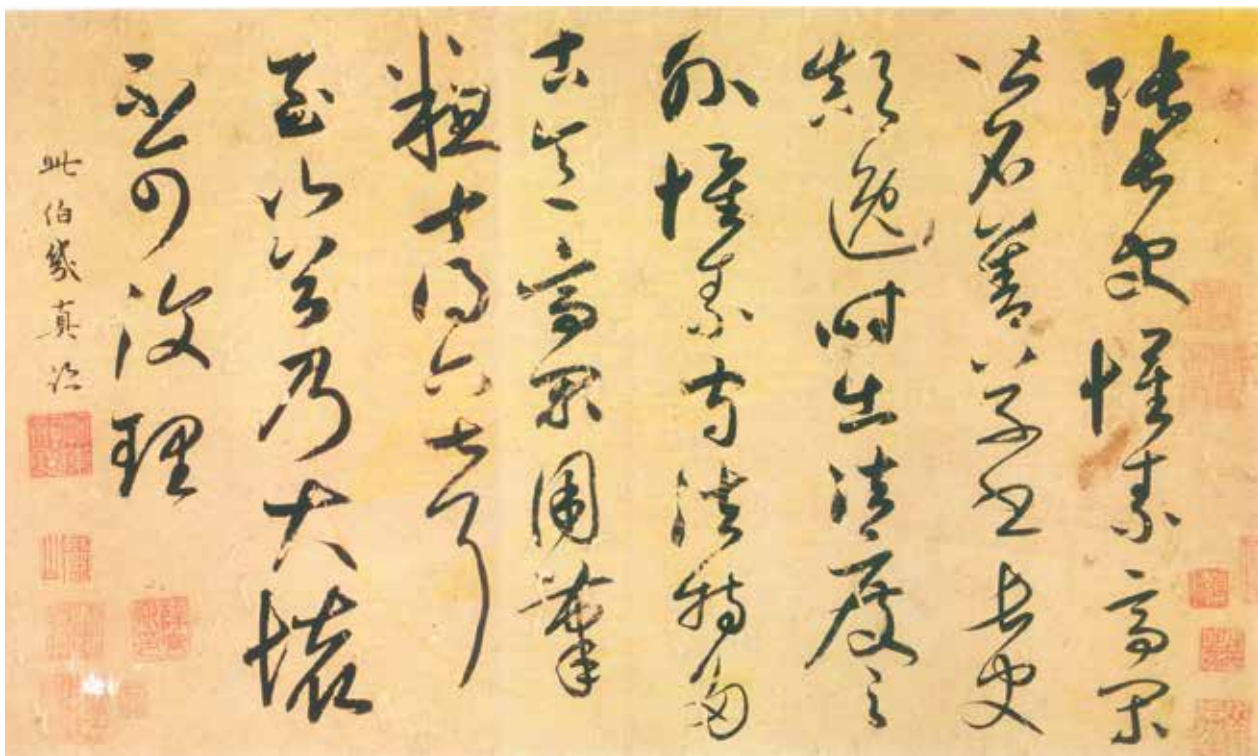 張長史懷素高閑
皆名善草書長史
顛逸時出法度之
外懷素守法特多
古意高閑用筆
粗十得六七耳
至山谷乃大壞
不可復理
此伯幾真迹